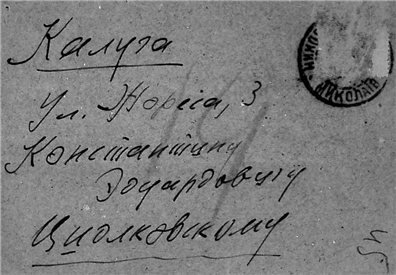 Калуга
Ул. Жореса, 3
Константину
Эдуардовичу
Циолковскому
НИКОЛАЇВ